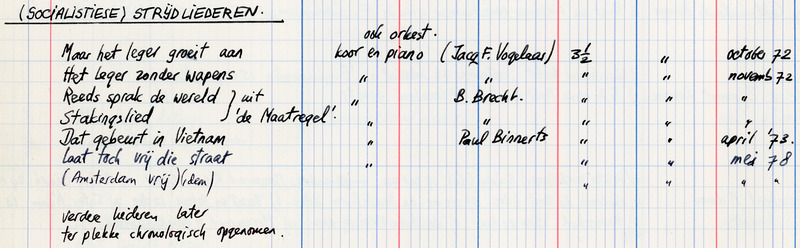 (SOCIALISTIESE) STRIJDLIEDEREN.
ook orkest.
Maar het leger groeit aan koor en piano (Jacq F. Vogelaar) 3½ " october 72
Het leger zonder wapens " " " " novemb 72
Reeds sprak de wereld } uit " B. Brecht. " " "
Stakingslied } 'de Maatregel'. " " " " "
Dat gebeurt in Vietnam " Paul Binnerts " " april '73.
Laat toch vrij die straat " " " mei 78
(Amsterdam vrij) (idem) " " " "
verdere liederen later
ter plekke chronologisch opgenomen.